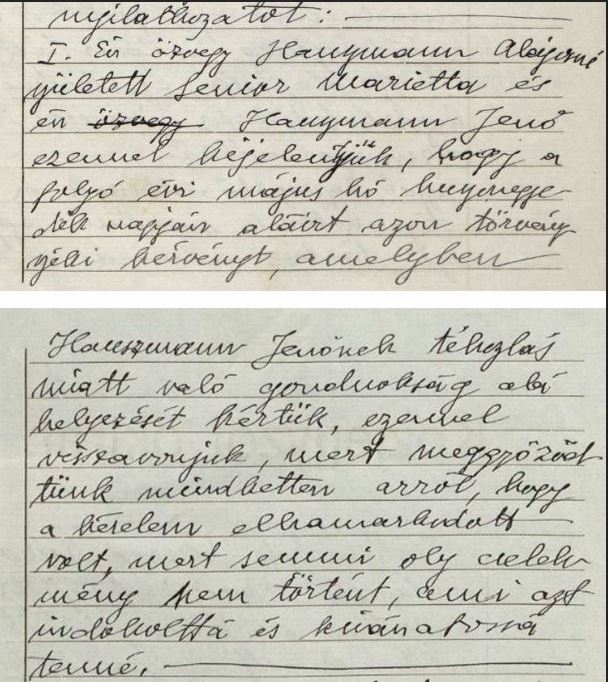 nyilatkozatot: —
I. Én özvegy Hauszmann Alajosné
született Senior Marietta és
én özvegy Hauszmann Jenő
ezennel bejelentjük, hogy a
folyó évi május hó huszonegye-
dik napján aláirt azon törvény
széki kérvényt, amelyben
Hauszmann Jenőnek tékozlás
miatt való gondnokság alá
helyezését kértük, ezennel
visszavonjuk, mert meggyőződ
tünk mindketten arról, hogy
a kérelem elhamarkodott
volt, mert semmi oly cselek
mény nem történt, ami azt
indokolttá és kivánatossá
tenné. —